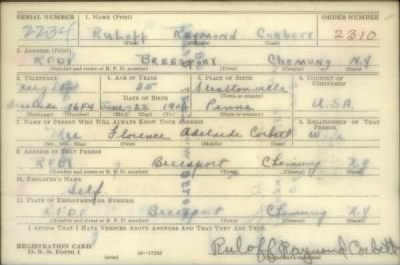 SERIAL NUMBER 1. NAME (Print) ORDER NUMBER
2234 Ruloff Raymond Corbett 2310
(First) (Middle) (Last)
2. ADDRESS (Print)
RFD1 BREESPORT CHEMUNG N.Y
(Number and street or R. F. D. number) (Town) (County) (State)
3. TELEPHONE 4. AGE IN YEARS 5. PLACE OF BIRTH 6. COUNTRY OF CITIZENSHIP
35
DATE OF BIRTH
1684 June 22 Penna U.S.A.
(Exchange) (Number) (Mo.) (Day) (Yr.) (State or country)
7. NAME OF PERSON WHO WILL ALWAYS KNOW YOUR ADDRESS 8. RELATIONSHIP OF THAT PERSON
Mrs Florence Adelaide Corbett
(Mr., Mrs., Miss) (First) (Middle) (Last)
9. ADDRESS OF THAT PERSON
RFD1 Breesport Chemung N.Y
(Number and street or R. F. D. number) (Town) (County) (State)
10. EMPLOYER'S NAME
Self
11. PLACE OF EMPLOYMENT OR BUSINESS
RFD1 Breesport Chemung N.Y
(Number and street or R. F. D. number) (Town) (County) (State)
I AFFIRM THAT I HAVE VERIFIED ABOVE ANSWERS AND THAT THEY ARE TRUE.
REGISTRATION CARD
D. S. S. Form 1 (over) Ruloff Raymond Corbett